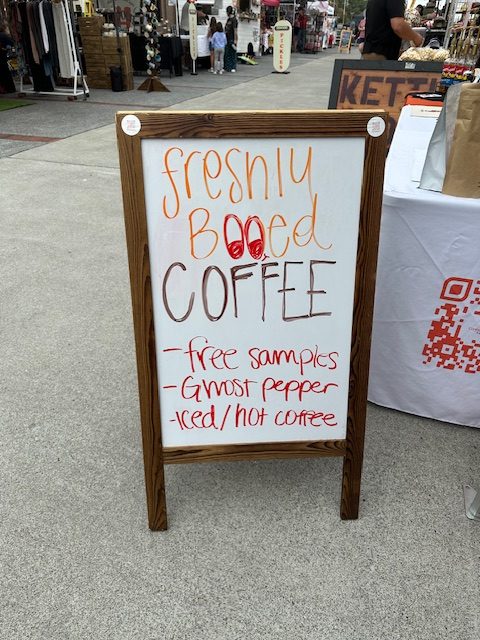 freshly
Booed
COFFEE
- free samples
- Ghost pepper
- Iced/hot coffee
KET
PICKLES